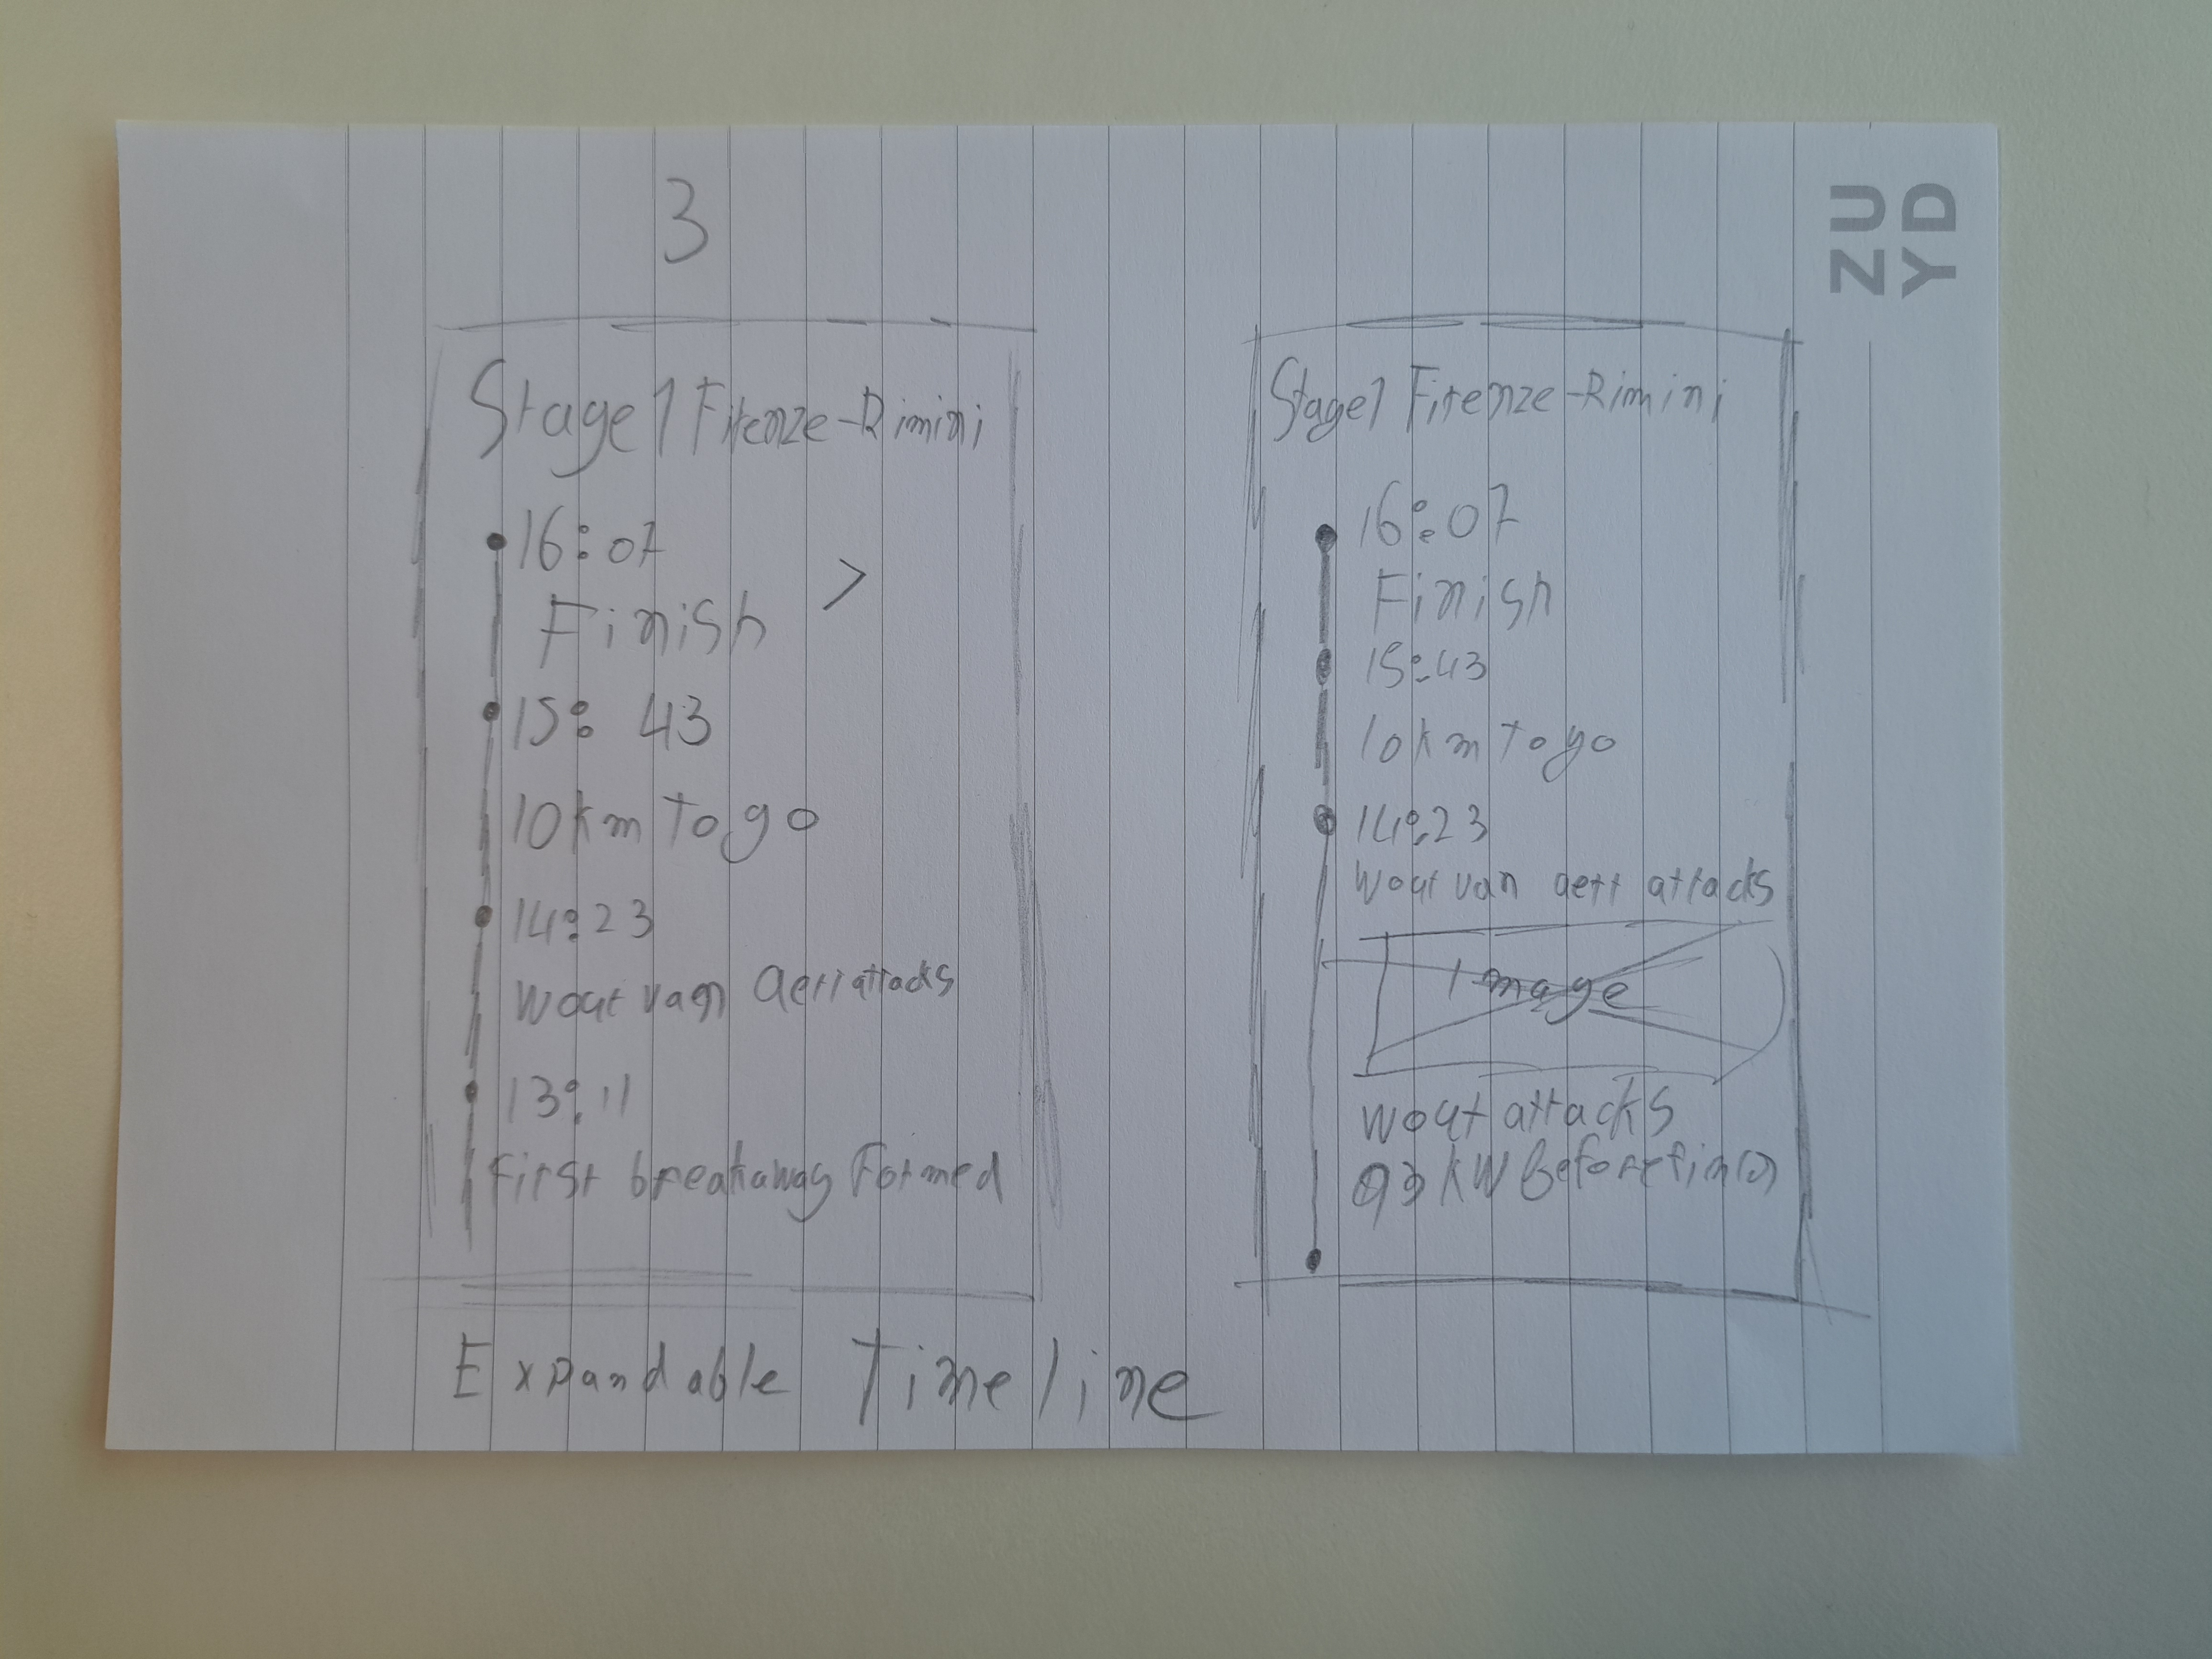 3
ZU
YD
Stage 1 Firenze-Rimini
16:07
Finish >
15:43
10km to go
14:23
Wout van Aert attacks
13:11
First breakaway formed
Stage 1 Firenze-Rimini
16:07
Finish
15:43
10km to go
14:23
Wout van aert attacks
Image
Wout attacks
Before
Expandable Timeline